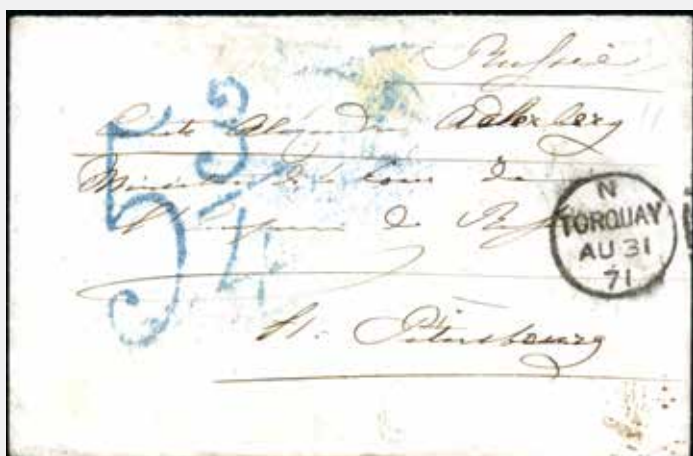 Russie
Comte Alexandre Adlerberg
Ministre de la Cour de
l'Empereur de Russie
St. Pétersbourg
5 3/4
N
TORQUAY
AU 31
71